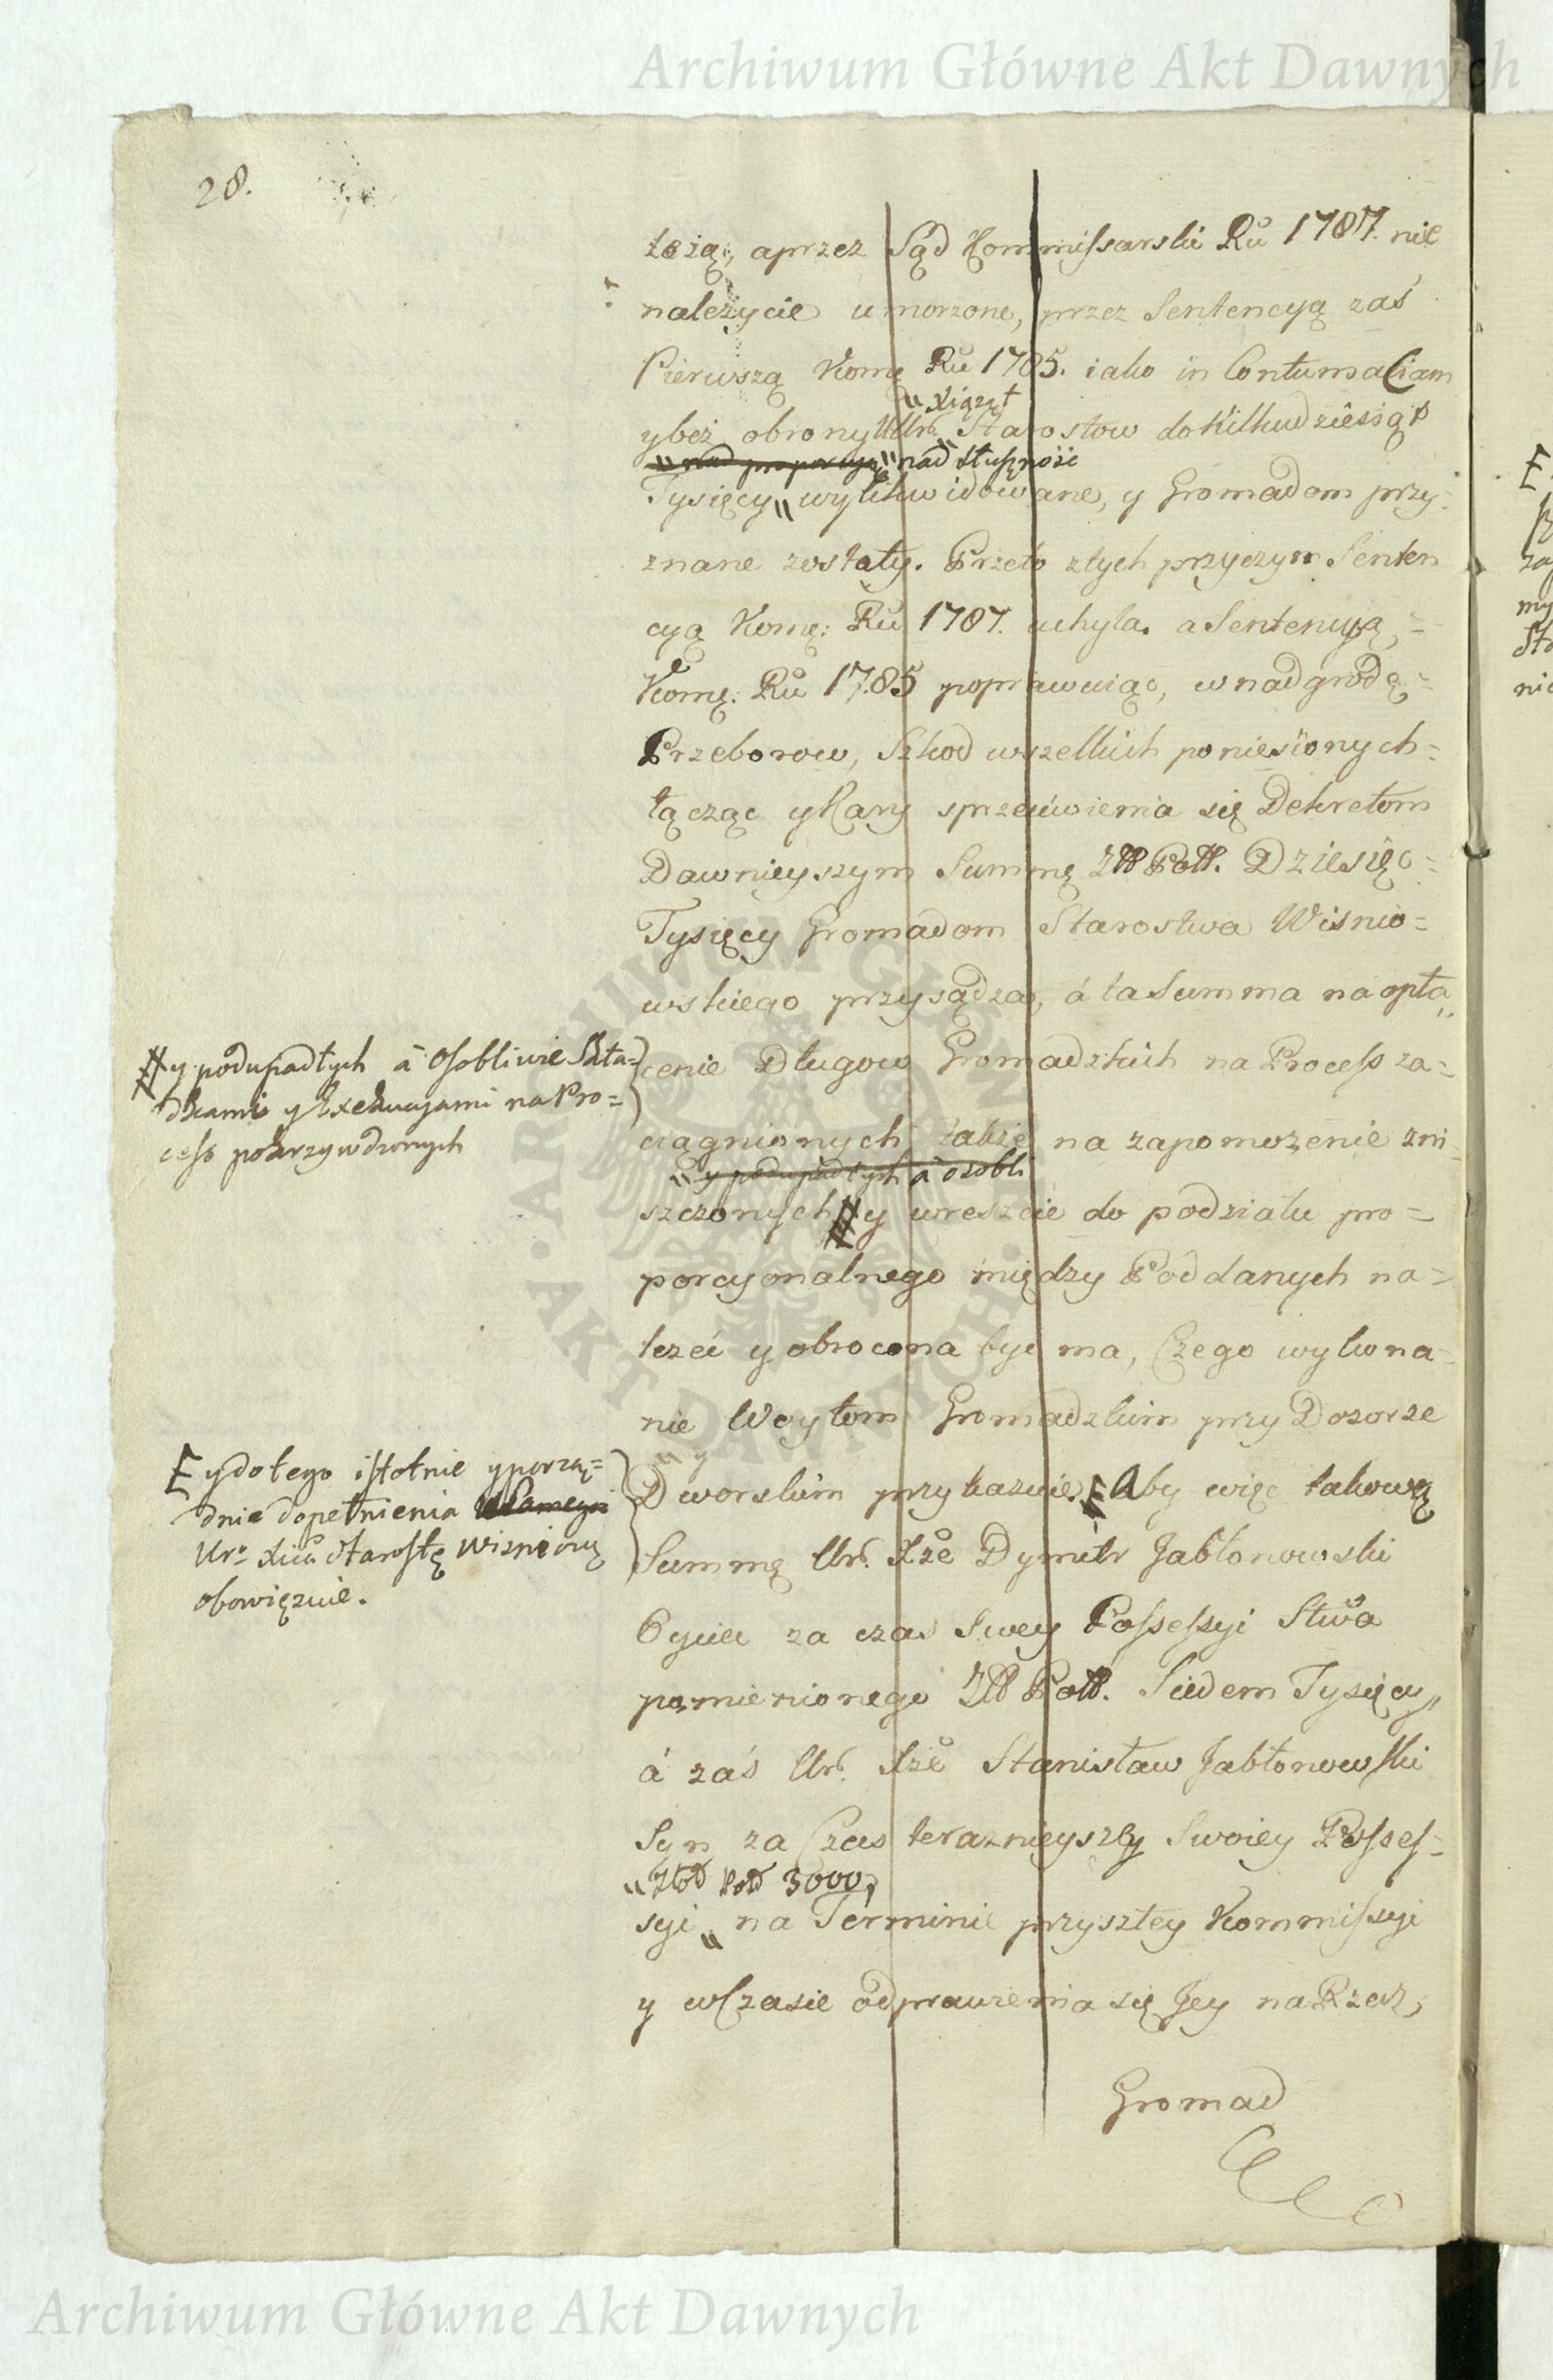 Archiwum Główne Akt Dawnych
28.
łożą, aprzez Sąd Kommissarski Ru 1787. nie
należycie umorzone, przez Sentencyą zaś
Pierwszą Komę Ru 1785. iako in Contumaciam
" Xiążąt
ybez obrony UUr. Starostow do kilkudziesiąt
" nad proporcyą " nad słusznośc
Tysięcy " wylikwidowane, y Gromadom przy-
znane zostały. Przeto ztych przyczyn Senten
cyą Komę: Ru 1787. uchyla. a Sentencyą =
Komę: Ru 1785 poprawuiąc, w nadgrodę =
Przeborow, Szkod wszelkich poniesionych =
łącząc y Kary sprzeciwienia się Dekretom
Dawnieyszym Summę Złł Poll. Dziesięc =
Tysięcy Gromadom Starostwa Wisnio =
wskiego przysądza, á ta Summa na opła„
cenie Długow Gromadzkich na Process za =
ciągnionych także na zapomożenie zni -
" y podupadłych á osobli
szczonych # y wreszcie do podziału pro =
porcyonalnego między Poddanych na =
leżeć y obrocona być ma, Czego wykona -
nie Woytom Gromadzkim przy Dozorze
" y
Dworskim przykazuie. E Aby więc takową
Summę Ur. Xże Dymitr Jabłonowski
Oyciec za czas Swey Possessyi Stwa
pomienionego Złł Poll. Siedem Tysięcy„
á zaś Ur. Xże Stanisław Jabłonowski
Syn za Czas terazнieyszy Swoiey Posses =
" Złod Pod 3000,
syi " na Terminie przyszłey Kommissyi
y w Czasie odprawienia się Jey na Rzecz,
Gromad
# y podupadłych á Osobliwie Skła =
dkami y Exekucyami na Pro =
cess pokrzywdzonych
E y do tego istotnie y porzą =
dnie dopełnienia
Ur. Xcia Starostę Wisniowę
obowięzuie.
ARCHIWUM GŁÓWNE AKT DAWNYCH
Archiwum Główne Akt Dawnych